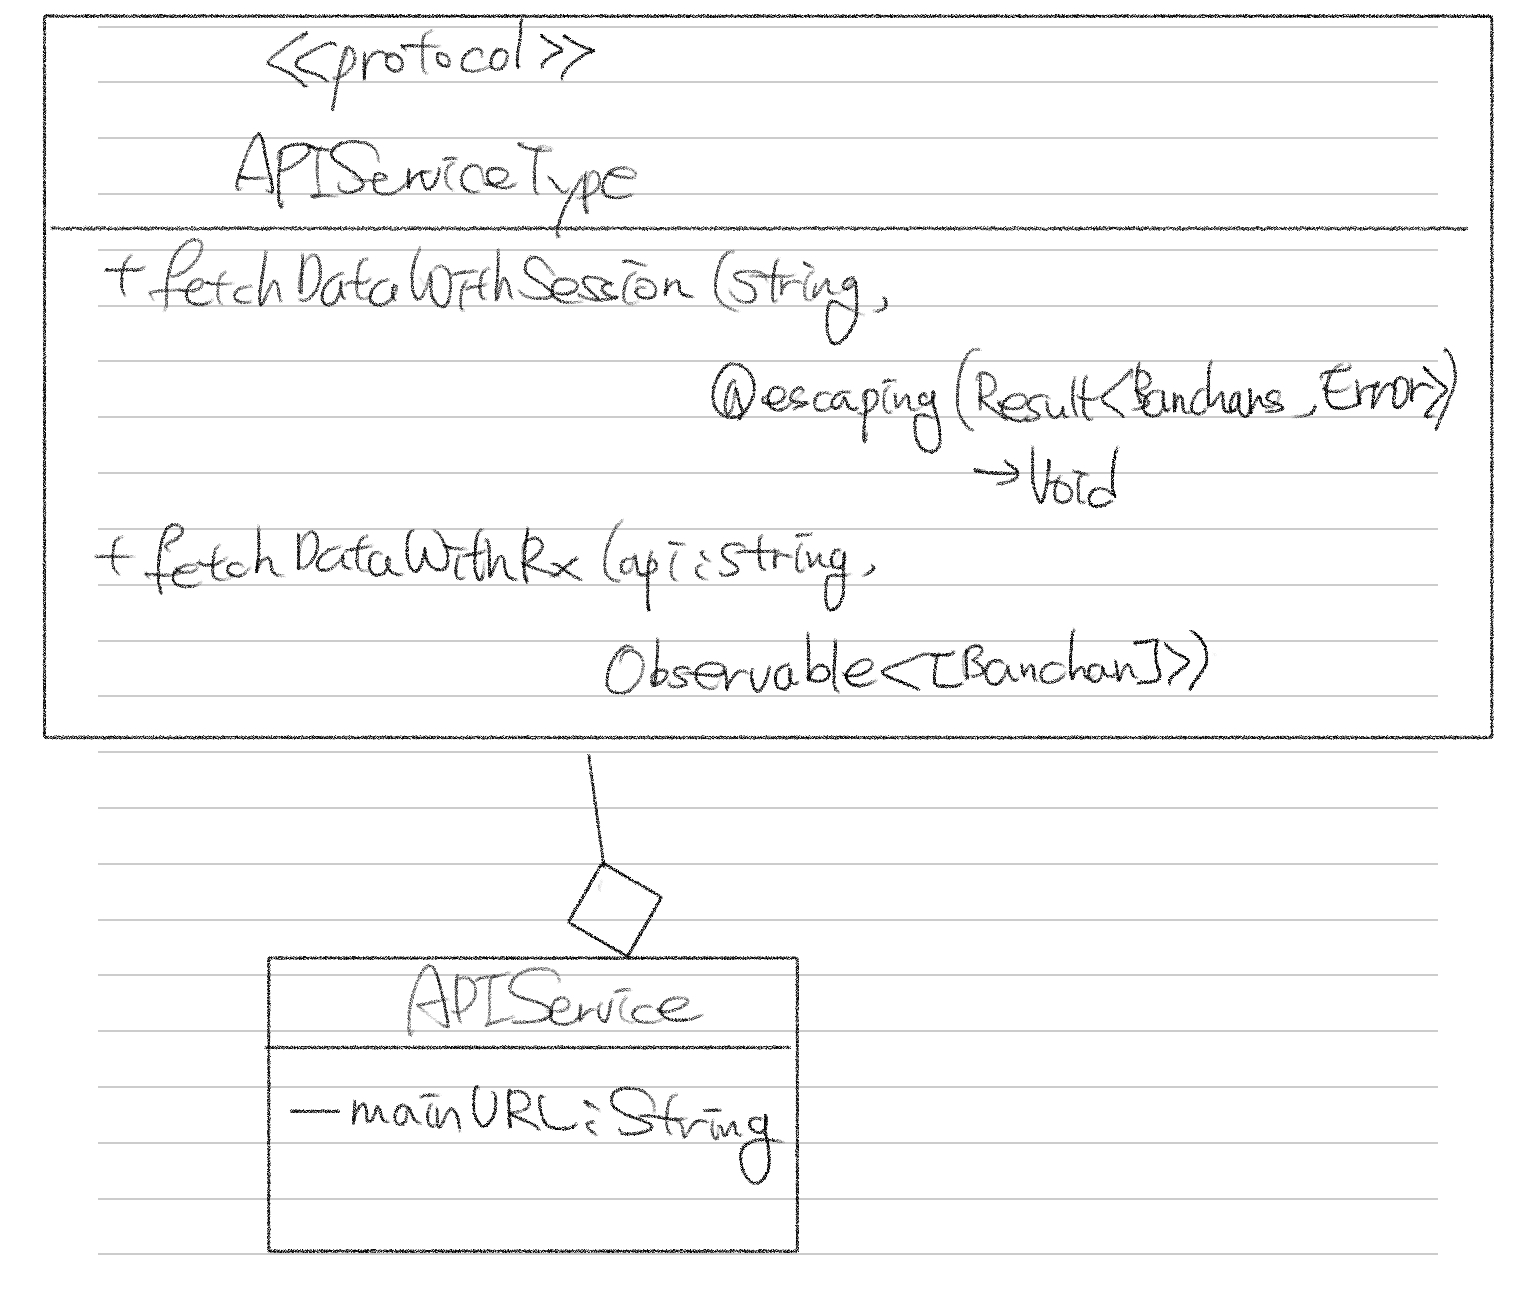 <<protocol>>
APIServiceType
+ fetchDataWithSession (string,
@escaping (Result<Banchans, Error>)
→ Void
+ fetchDataWithRx (api : string,
Observable<[Banchan]>)
APIService
- mainURL : String